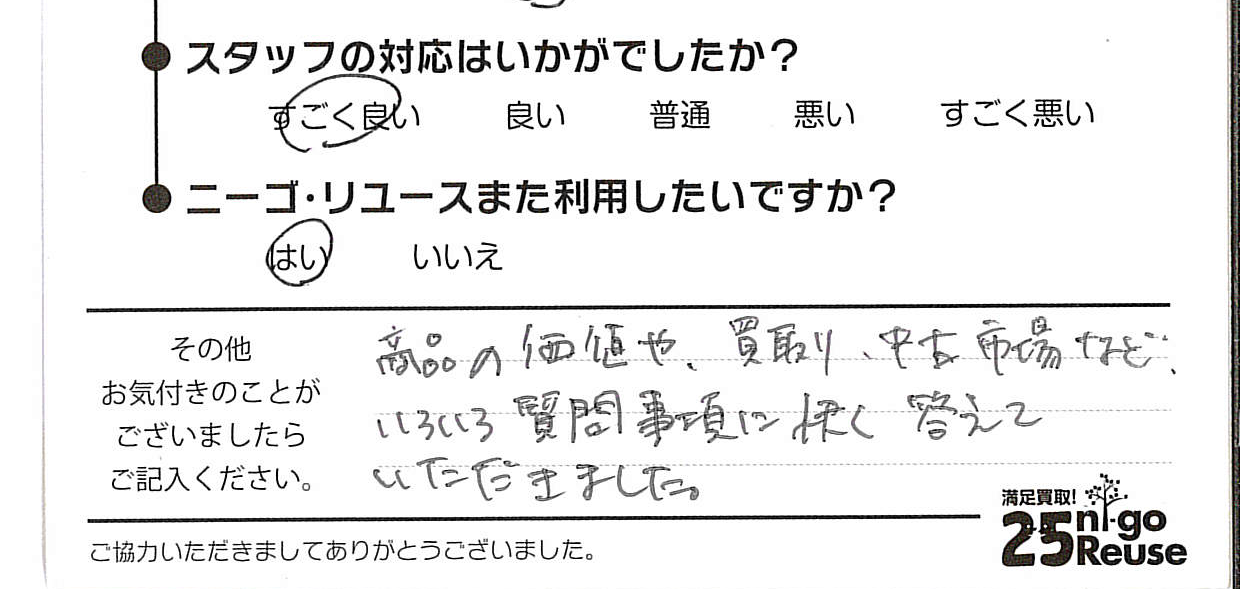 スタッフの対応はいかがでしたか?
すごく良い 良い 普通 悪い すごく悪い
ニーゴ・リユースまた利用したいですか?
はい いいえ
その他
お気付きのことが
ございましたら
ご記入ください。
商品の価値や、買取り、中古市場など、
いろいろ質問事項に快く答えて
いただきました。
満足買取!
25 ni-go
Reuse
ご協力いただきましてありがとうございました。